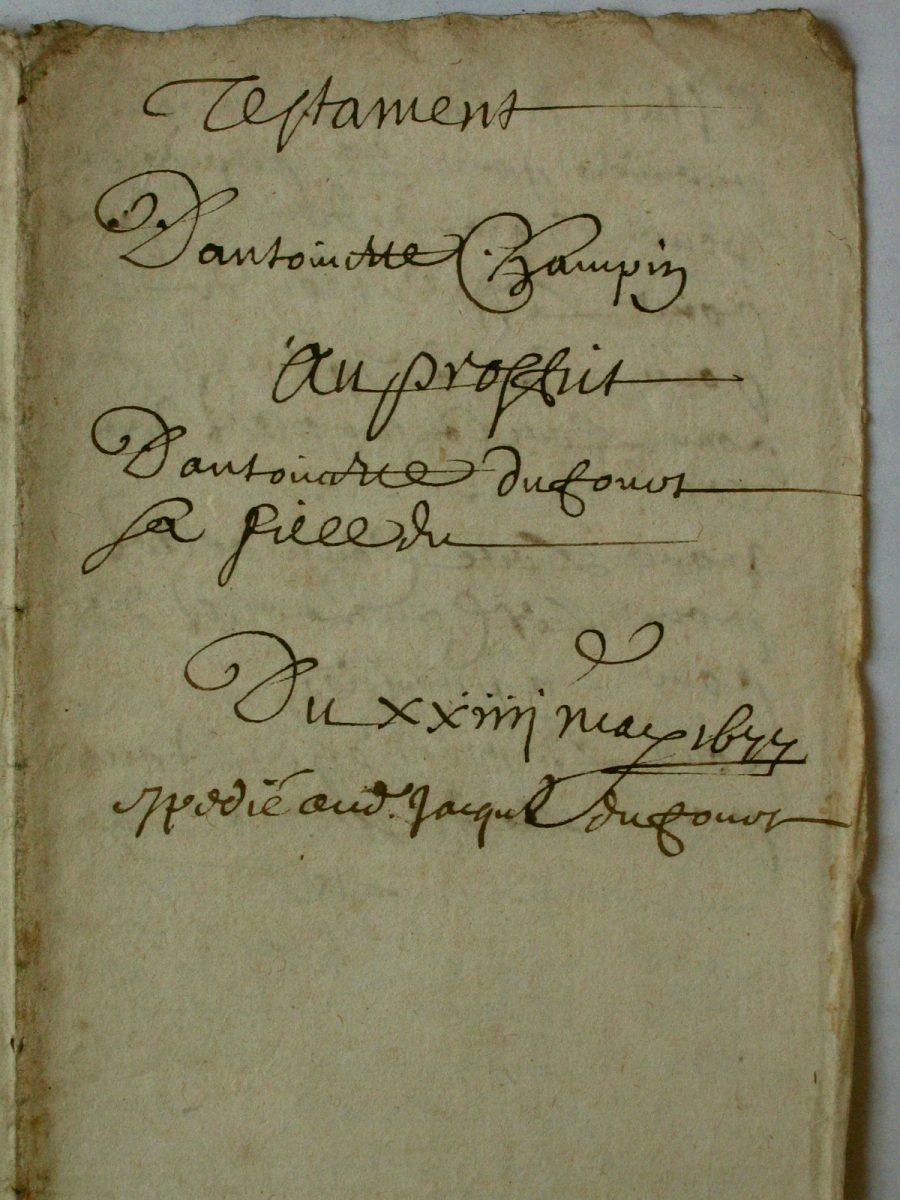 Testament
Dantoinette Champin
Au proffit
Dantoinette ducourt
sa fille du
Du xxiiij may 1677
expedié aud. Jacques ducourt